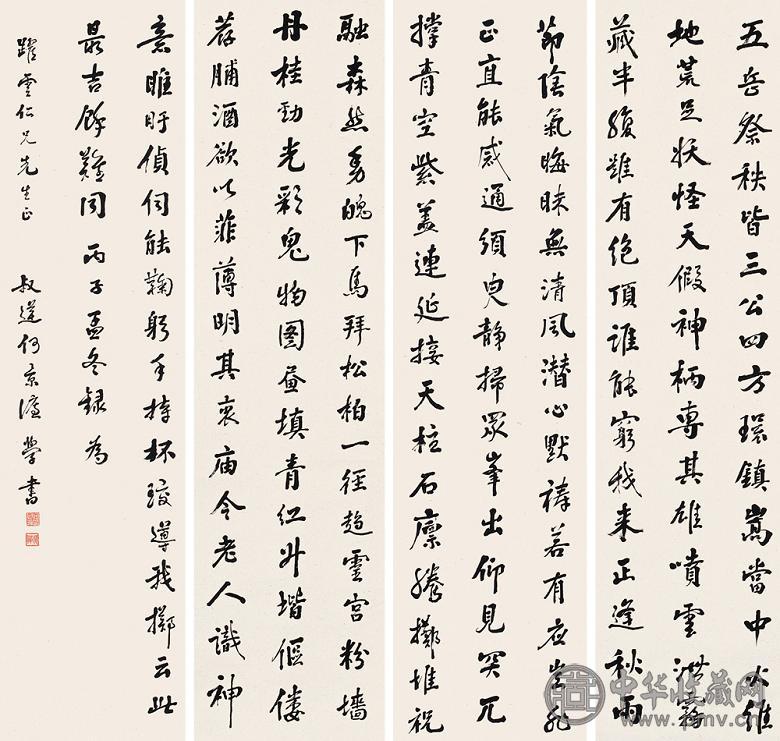 五岳祭秩皆三公四方環鎮嵩當中火維
地荒足妖怪天假神柄專其雄噴雲泄霧
藏半腹雖有绝頂誰能窮我来正逢秋雨
節陰氣晦昧無清風潜心默禱若有应豈非
正直能感通須臾静掃眾峯出仰見突兀
撑青空紫盖連延接天柱石廩騰擲堆祝
融森然動魄下馬拜松柏一徑趋靈宫粉墻
丹桂動光彩鬼物图畫填青红升堦傴僂
荐脯酒欲以菲薄明其衷庙令老人識神
意睢盱偵伺能鞠躬手持杯珓導我擲云此
最吉餘難同 丙子孟冬録為
躍雲仁兄先生正 叔道何京 學書
中华收藏网